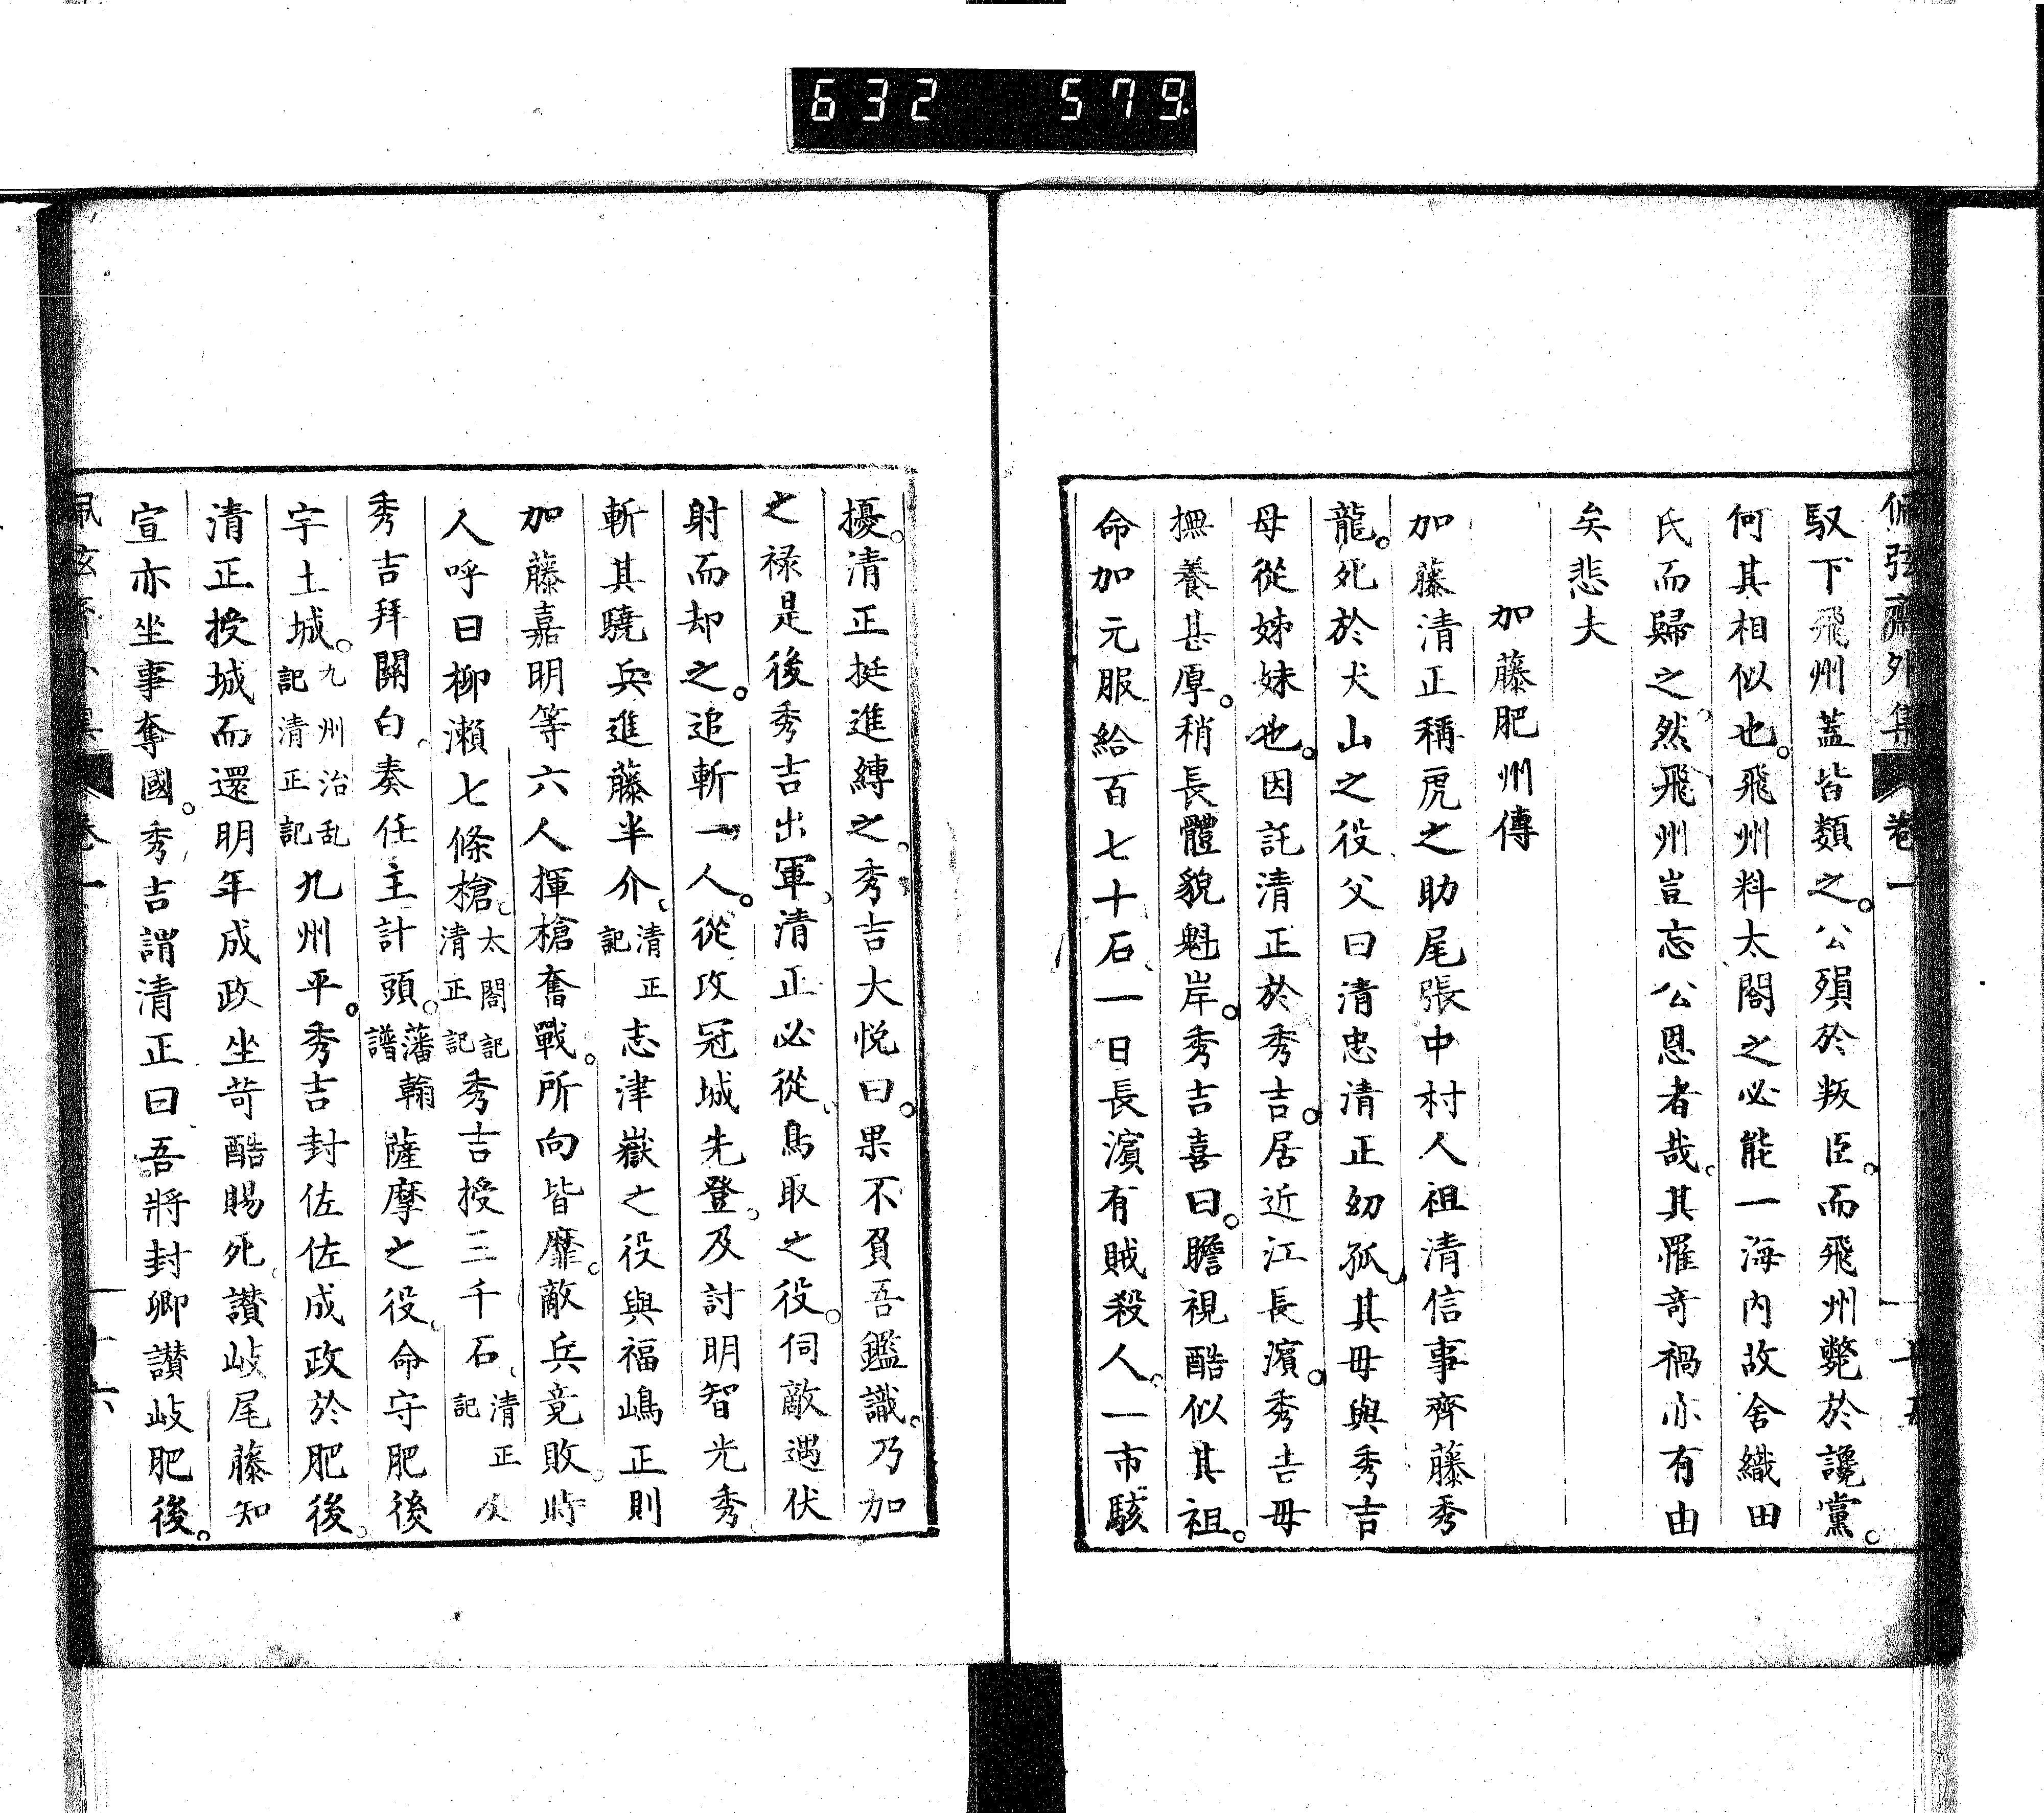 632 579
佩弦齋外集 卷一 一 十五
馭下飛州蓋皆類之。公殞於叛臣。而飛州斃於讒黨。
何其相似也。飛州料太閤之必能一海內故舍織田
氏而歸之。然飛州豈忘公恩者哉。其罹奇禍亦有由
矣悲夫
加藤肥州傳
加藤清正稱虎之助尾張中村人祖清信事齊藤秀
龍。死於犬山之役、父曰清忠清正幼孤。其母與秀吉
母從姊妹也。因託清正於秀吉。居近江長濱。秀吉母
撫養甚厚。稍長體貌魁岸。秀吉喜曰。瞻視酷似其祖。
命加元服給百七十石、一日長濱有賊殺人。一市駭
擾。清正挺進縛之。秀吉大悅曰。果不負吾鑑識。乃加
之祿是後秀吉出軍、清正必從、鳥取之役。伺敵遇伏
射而却之。追斬一人。從攻冠城先登。及討明智光秀、
斬其驍兵進藤半介、清正記志津嶽之役與福嶋正則
加藤嘉明等六人揮槍奮戰。所向皆靡。敵兵竟敗。時
人呼曰柳瀨七條槍。太閤記清正記秀吉授三千石、清正記及
秀吉拜關白。奏任主計頭。藩翰譜薩摩之役、命守肥後
宇土城。九州治乱記清正記九州平。秀吉封佐佐成政於肥後。
清正授城而還明年成政坐苛酷賜死。讃岐尾藤知
宣亦坐事奪國。秀吉謂清正曰、吾將封卿讃岐肥後。
佩弦齊外集 卷一 一 十六